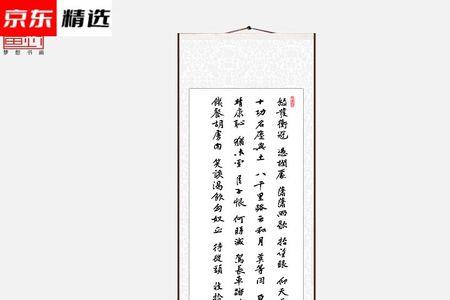 京东 精选
梦想书画
怒发冲冠 凭栏处 潇潇雨歇 抬望眼 仰天
十功名尘与土 八千里路云和月 莫等闲
靖康耻 犹未雪 臣子恨 何时灭 驾长车踏
饥餐胡虏肉 笑谈渴饮匈奴血 待从头 收拾